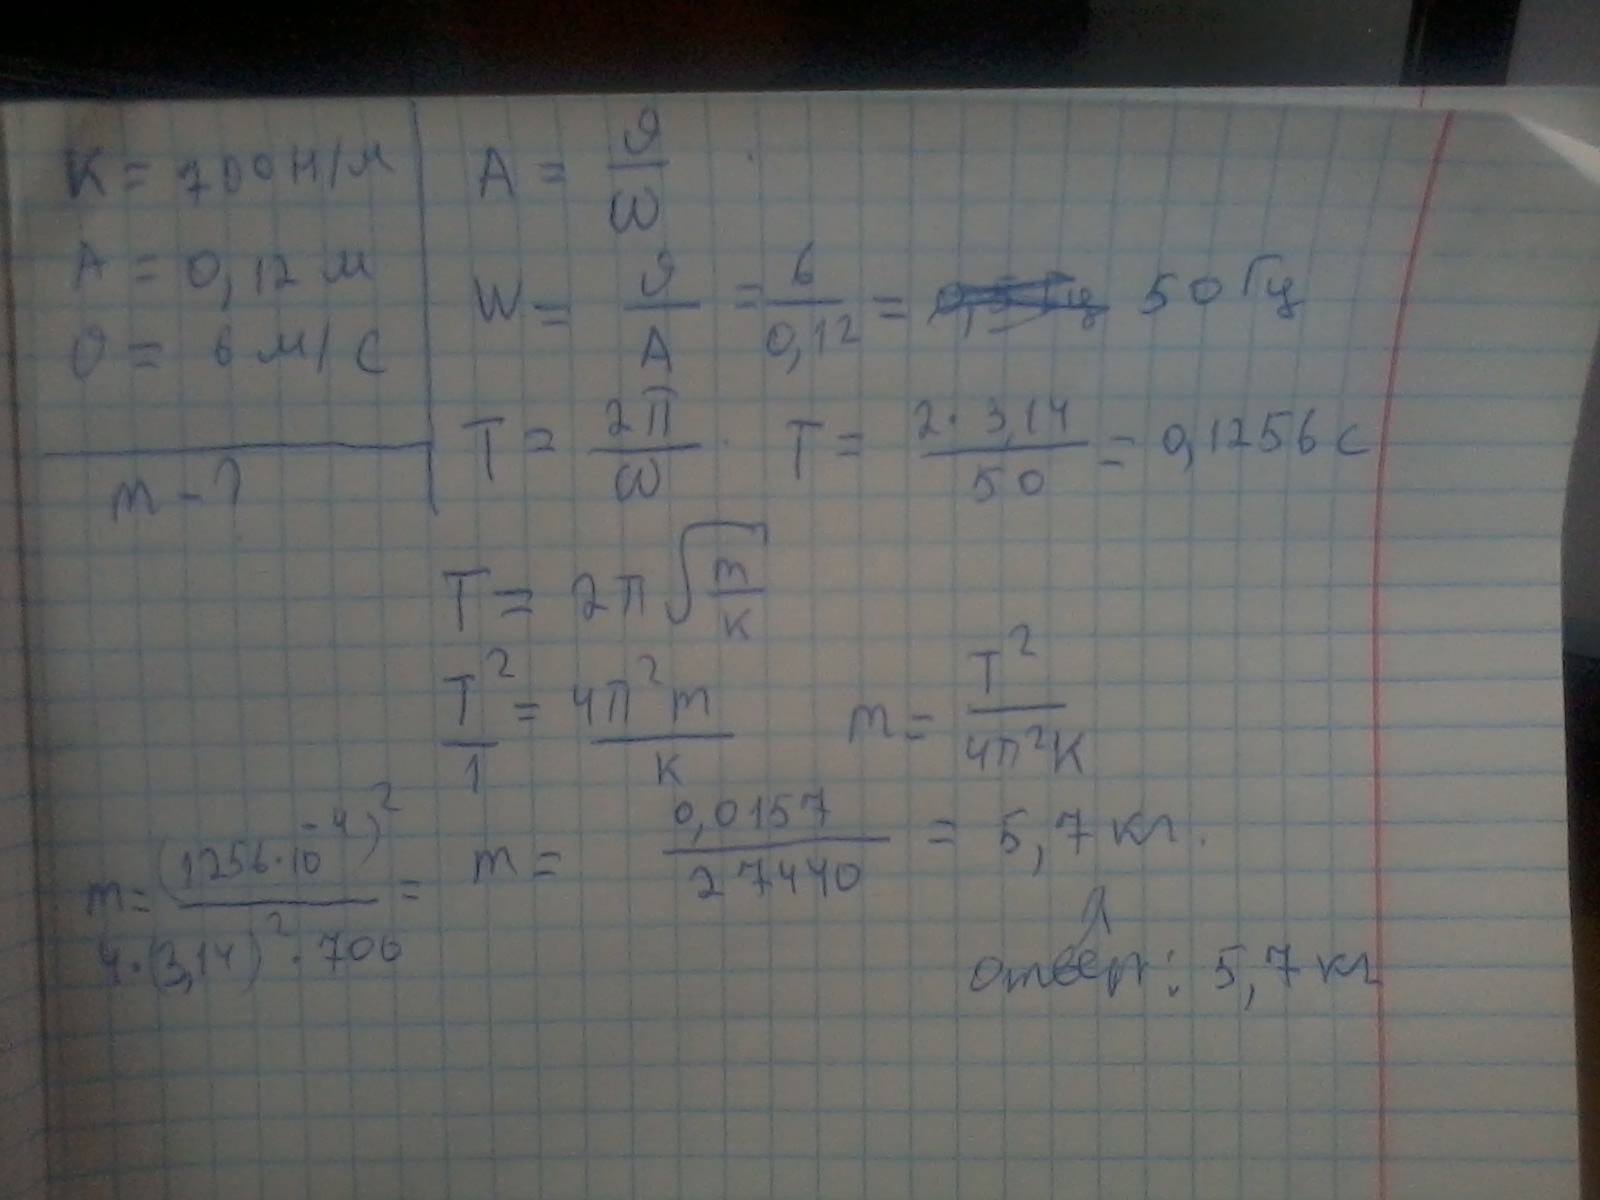 K = 700 Н/м
A = 0,12 м
υ = 6 м/с
m - ?
A = υ/ω
W = υ/A = 6/0,12 = 50 Гц
T = 2π/ω · T = 2·3,14/50 = 0,1256 с
T = 2π√(m/к)
T²/1 = 4π²m/к m = T²/4π²К
m = (1256·10⁻⁴)²/4·(3,14)²·700 = m = 0,0157/27440 = 5,7 кг.
ответ: 5,7 кг